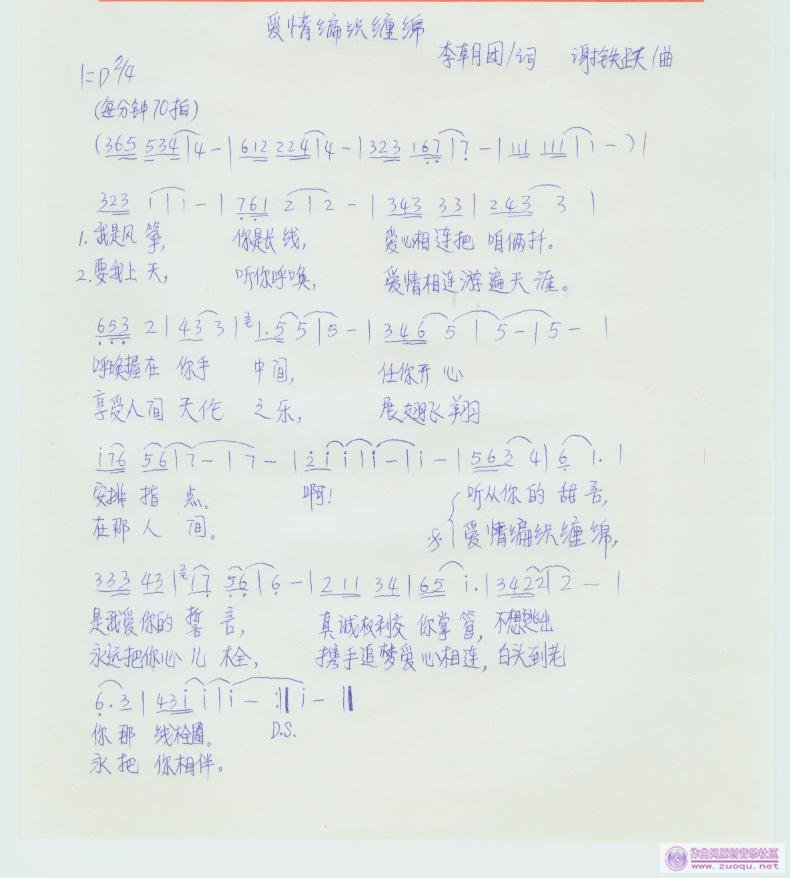 爱情编织缠绵
李朝团/词 谢铁跌/曲
1=D 2/4
(每分钟70拍)
(365 534|4-|612 224|4-|323 167|7-|111 111|i-)|
323 i|i-|761 2|2-|343 33|243 3|
1.我是风筝, 你是长线, 爱心相连把咱俩扦。
2.要我上天, 听你呼唤, 爱情相连游遍天涯。
653 2|43 3|1.5 5|5-|346 5|5-|5-|
呼唤握在 你手 中间, 任你开心
享受人间 天伦 之乐, 展翅飞翔
i76 56|7-|7-|2i i|i-|i-|563 4|6 1.|
安排 指 点。 啊! 听从你的 甜言,
在那 人 间。 爱情编织缠绵,
333 43|17 56|6-|2 11 34|65 i.|3422|2-|
是我爱你的 誓 言, 真诚权利交 你掌管, 不想逃出
永远把你心儿 栓, 携手追梦爱心相连, 白头到老
6.3|43i i|i-:‖i-‖
你那 线栓圈。 D.S.
永把 你相伴。
作曲网原创音乐社区
www.zuoqu.net